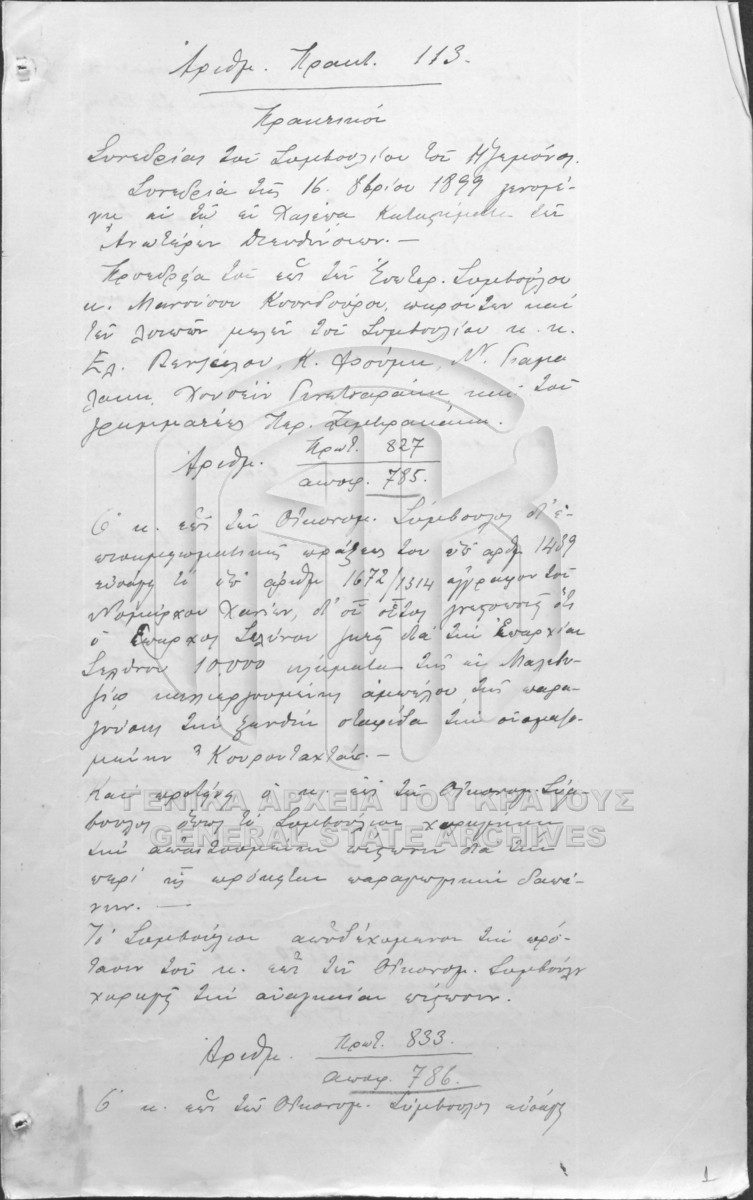 Ἀριθμ. Πρακτ. 113.
Πρακτικόν
Συνεδρίας τοῦ Συμβουλίου τοῦ Ἡγεμόνος.
Συνεδρία τῆς 16 8βρίου 1899 γενομέ-
νη ἐν τῷ ἐν Χαλέπᾳ Καταστήματι τῶν
Ἀνωτέρων Διευθύνσεων. —
Προεδρία τοῦ ἐπὶ τῶν Ἐσωτερ. Συμβούλου
κ. Μανούσου Κουνδούρου, παρόντων καὶ
τῶν λοιπῶν μελῶν τοῦ Συμβουλίου κ. κ.
Ἐλ. Βενιζέλου, Κ. Φούμη, Ν. Γιαμα
λάκη, Χουσεΐν Γενιτσαράκη καὶ τοῦ
γραμματέως Περ.
Ἀριθμ. Πρωτ. 827
αποφ. 785.
Ὁ κ. ἐπὶ τῶν Οἰκονομ. Σύμβουλος δι' ἐ-
πισημειωματικῆς πράξεώς του ὑπ' ἀριθ 1459
εἰσάγει τὸ ὑπ' ἀριθμ 1672/1314 ἔγγραφον τοῦ
Νομάρχου Χανίων, δι' οὗ οὗτος γνωστοποιεῖ ὅτι
ὁ Ἔπαρχος Σελίνου ζητεῖ διὰ τὴν Ἐπαρχίαν
Σελίνου 10000 κλήματα τῆς ἐν Μαλεβυ-
ζίῳ καλλιεργουμένης ἀμπέλου τῆς παρα-
γούσης τὴν ξανθὴν σταφίδα τὴν ὀνομαζο-
μένην "Κουρουνταχτάς. —
Καὶ προτείνει ὁ κ. ἐπὶ τῶν Οἰκονομ. Σύμ-
βουλος ὅπως τὸ Συμβούλιον χορηγήσῃ
τὴν ἀπαιτουμένην πίστωσιν διὰ τὴν
περὶ ἧς πρόκειται παραγωγικὴν δαπά-
νην. —
Τὸ Συμβούλιον ἀποδεχόμενον τὴν πρό-
τασιν τοῦ κ. ἐπὶ τῶν Οἰκονομ. Συμβούλου
χορηγεῖ τὴν ἀναγκαίαν πίστωσιν.
Ἀριθμ. Πρωτ. 833.
αποφ. 786.
Ὁ κ. ἐπὶ τῶν Οἰκονομ. Σύμβουλος εἰσάγει
ΓΕΝΙΚΑ ΑΡΧΕΙΑ ΤΟΥ ΚΡΑΤΟΥΣ
GENERAL STATE ARCHIVES
1